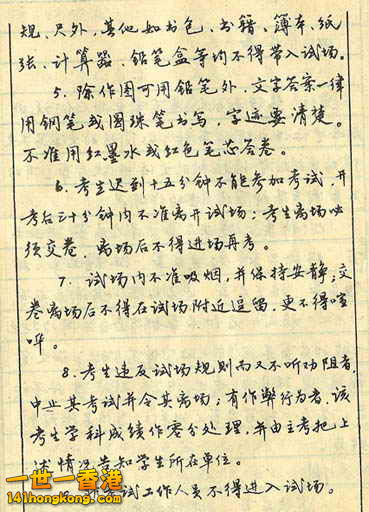 规、尺外，其他如书包、书籍、簿本、纸
张、计算器、铅笔盒等均不得带入试场。
5. 除作图可用铅笔外，文字答案一律
用钢笔或圆珠笔书写，字迹要清楚。
不准用红墨水或红色笔芯答卷。
6. 考生迟到十五分钟不能参加考试，开
考后三十分钟内不准离开试场；考生离场必
须交卷，离场后不得进场再考。
7. 试场内不准吸烟，并保持安静；交
卷离场后不得在试场附近逗留，更不得喧
哗。
8. 考生违反试场规则而又不听劝阻者，
中止其考试并令其离场；有作弊行为者，该
考生学科成绩作零分处理，并由主考把上
述情况告知学生所在单位。
试工作人员不得进入试场。
一世一香港
141hongkong.com